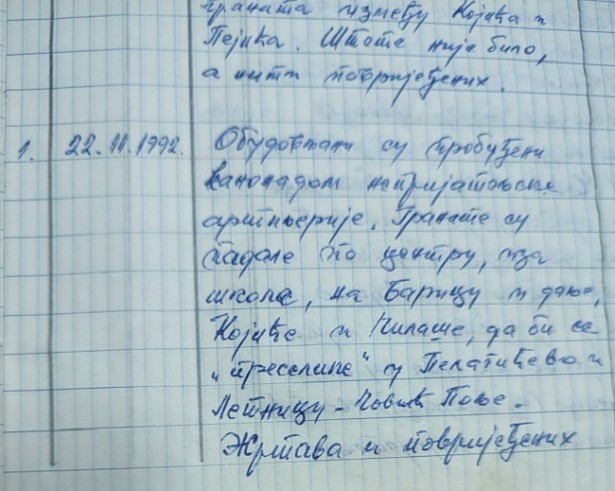 граната између Којића и
Пејића. Штете није било,
а нити повријеђених.
1. 22.11.1992. Обудовчани су пробуђени
канонадом непријатељске
артиљерије. Гранате су
падале по центру, иза
школе, на Барицу и даље,
Којиће и Чилаше, да би се
„преселиле" у Пелагићево и
Летницу - Ћовић Поље.
Жртава и повријеђених